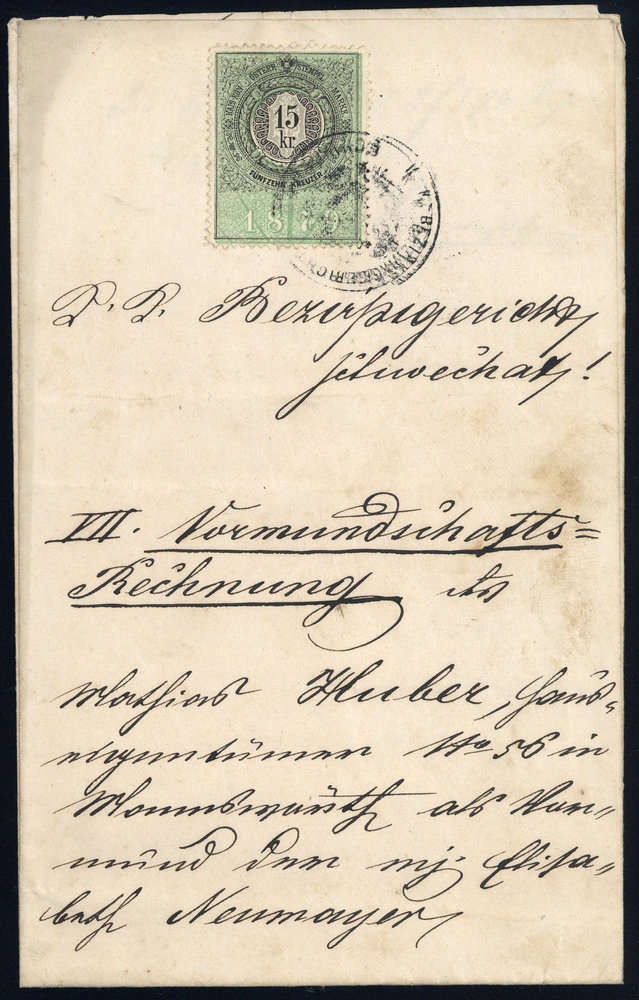 15
kr.
FÜNFZEHN KREUZER
1879
K. K. BEZIRKSGERICHT
K. K. Bezirksgericht
Schwechat!
VII. Vormundschafts=
Rechnung des
Mathias Huber, Haus-
eigentümer No 56 in
Mannswörth als Vor-
mund der mj. Elisa-
beth Neumayer